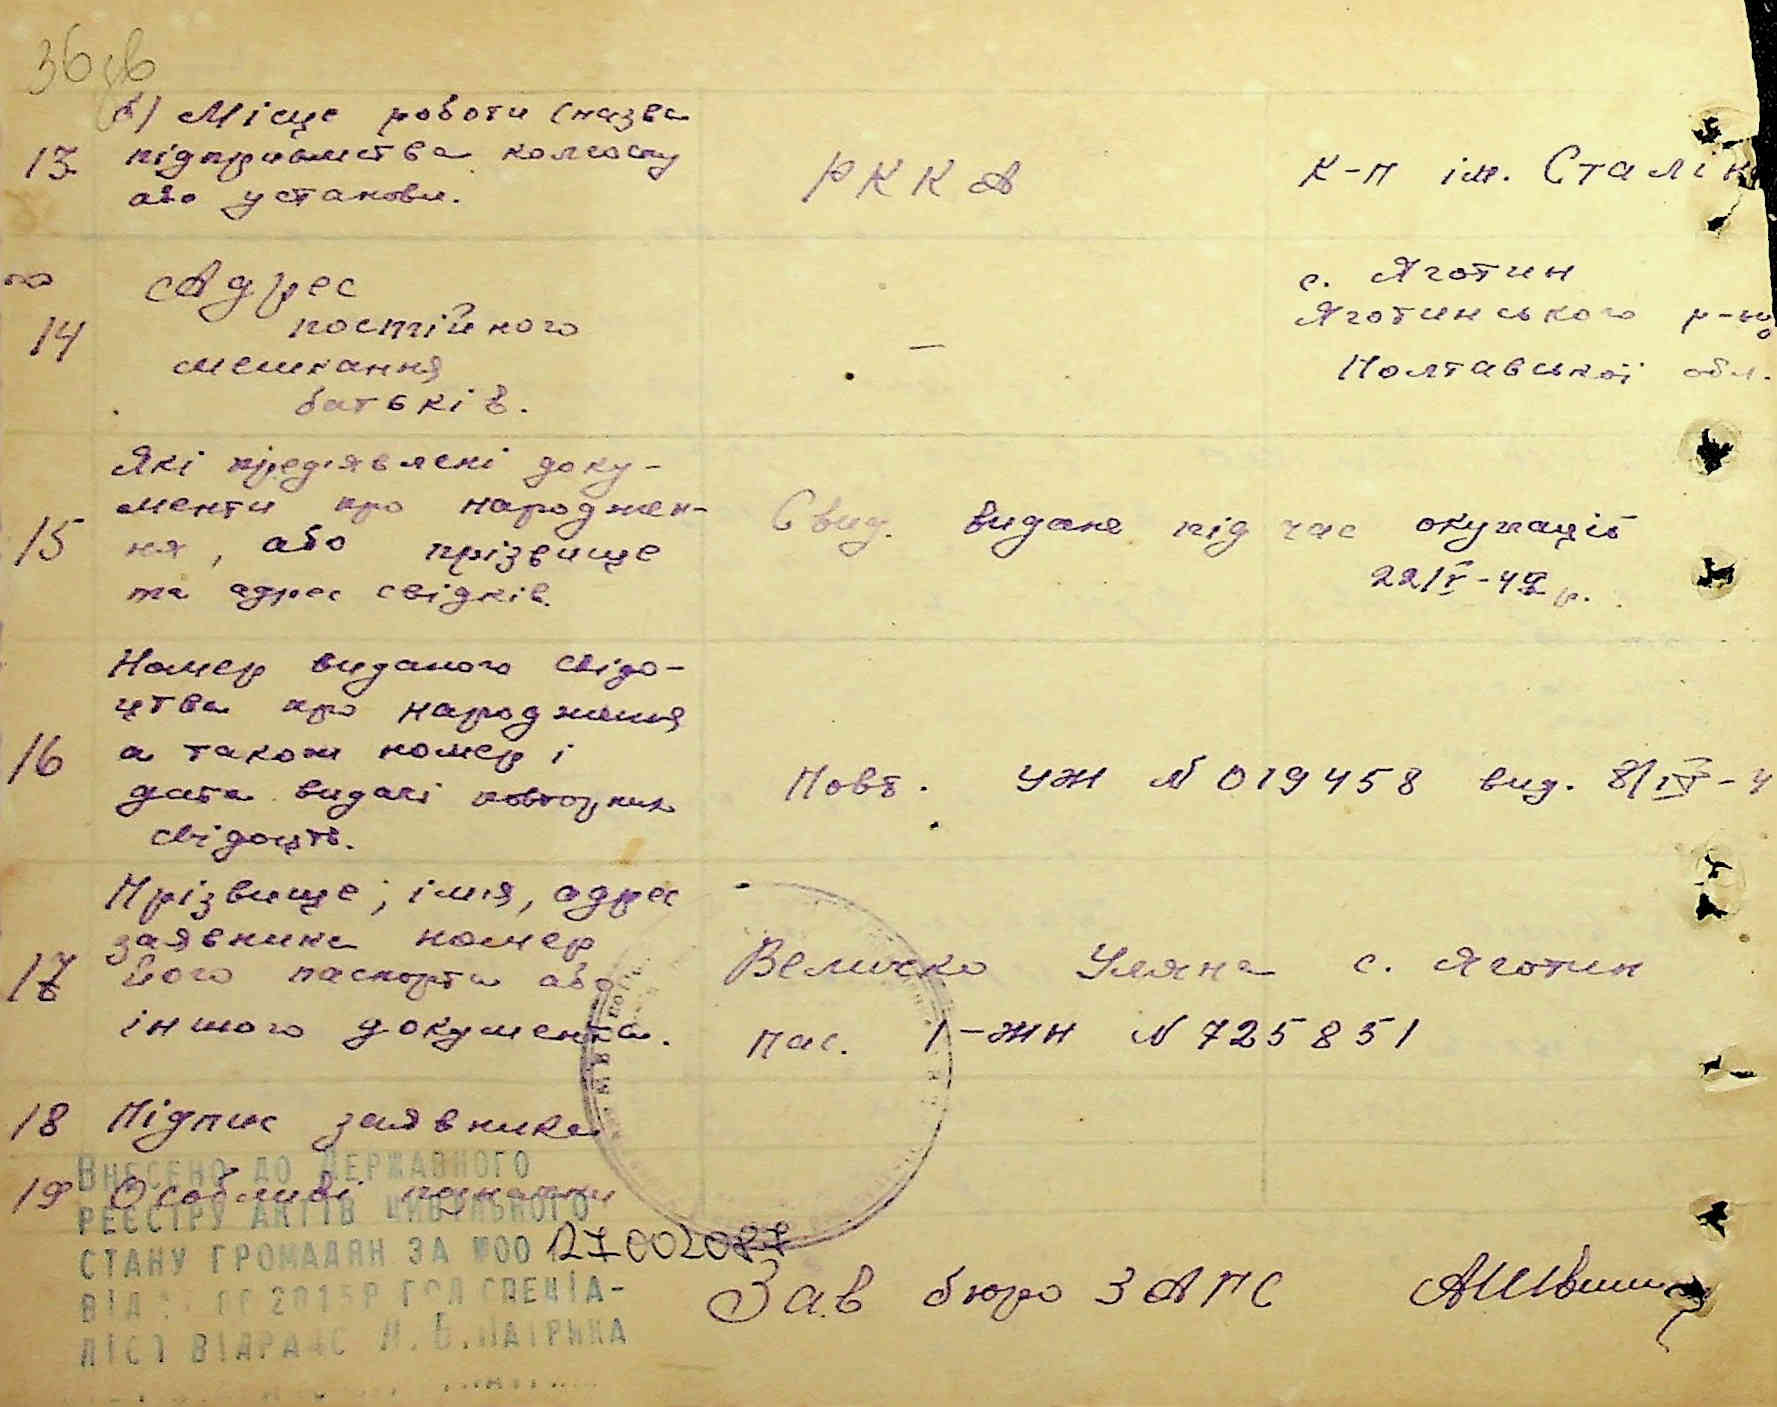 36 зв
б) Місце роботи (назва
13 підприємства колгоспу
або установи.
РККА
к-п ім. Сталін
14
Адрес
постійного
мешкання
батьків.
—
с. Яготин
Яготинського р-ну
Полтавської обл.
15
Які предіявлені доку-
менти про народжен-
ня, або прізвище
та адрес свідків.
Свид. видане під час окупації
16
Номер виданого свідо-
цтва про народження
а також номер і
дата видачі повторних
свідоцтв.
Повт. УЖ N 019458 вид. 8/IV-4
17
Прізвище, імія, адрес
заявника номер
його паспорта або
іншого документа.
Величко Уляна с. Яготин
пас. І-ЖН N 725851
18 Підпис заявника
19 Особливі
ВНЕСЕНО ДО ДЕРЖАВНОГО
РЕЄСТРУ АКТІВ ЦИВІЛЬНОГО
СТАНУ ГРОМАДЯН ЗА №00 127002087
ВІД 2015Р ГОЛ СПЕЦІА-
ЛІСТ ВІДРАЦС
Зав бюро ЗАГС